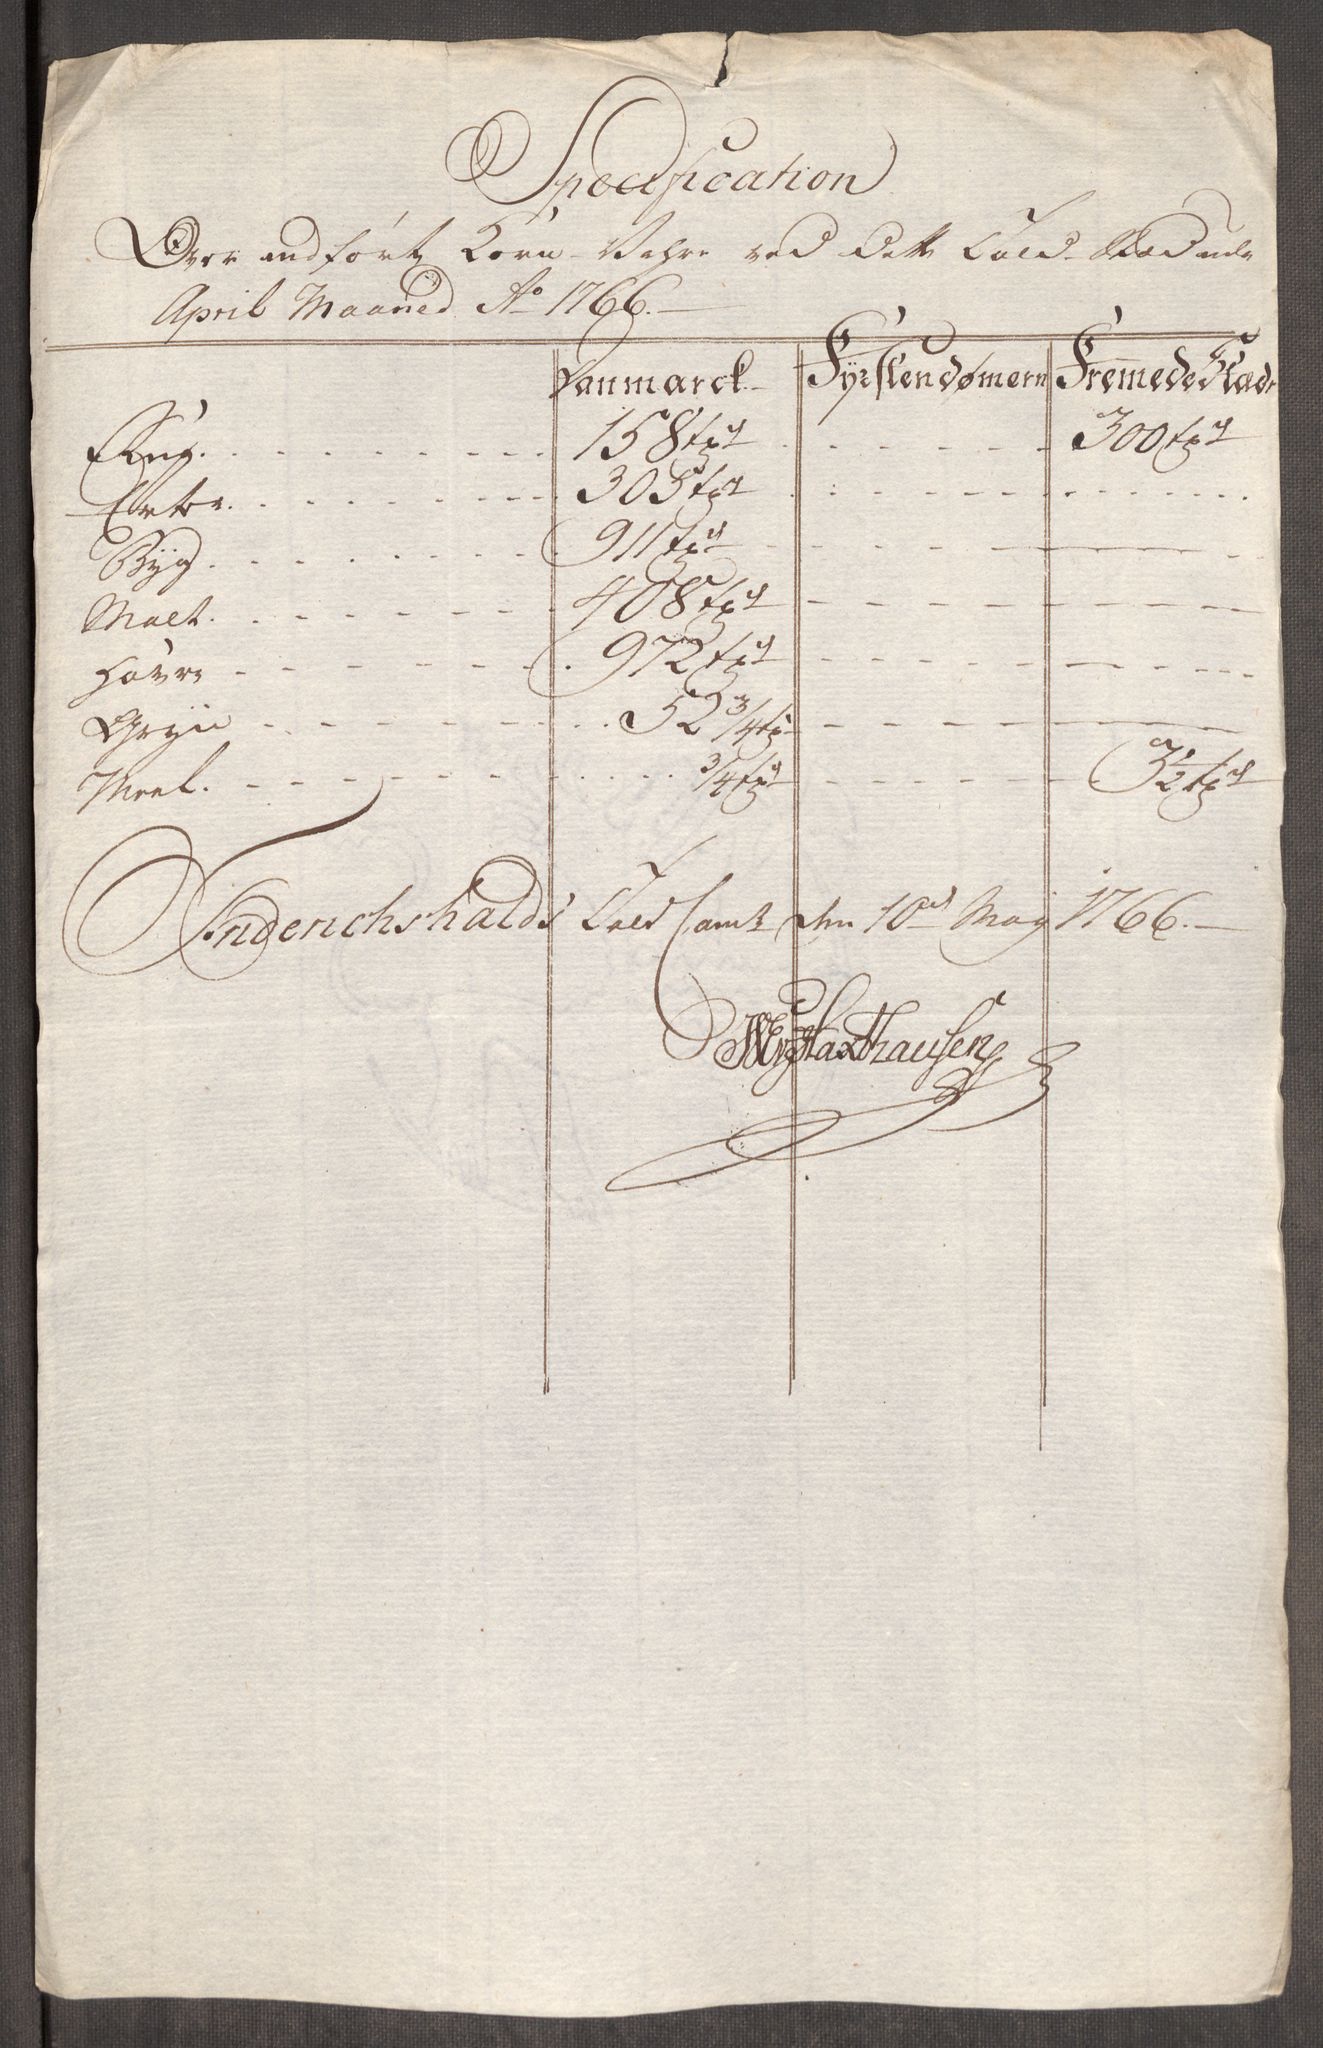 Specification
Over indført Korn-Vahre ved dette Told-Stæd udi
April Maaned Ao 1766.
Danmarck Fyrstendømern Fremede Stæder
Rug. 158 tr 300 tr
Erter. 303 tr
Byg 911 tr
Malt. 408 tr
Havre 972 tr
Gryn 52 3/4 tr
Meel. 3/4 tr 3 1/2 tr
Friderichshalds Told Camr den 10de Maij 1766.
Haxthausen